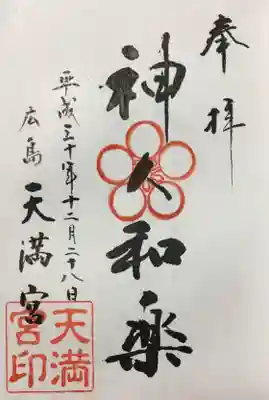 奉拝
神人和楽
平成三十年十二月二十八日
広島天満宮
天満
宮印